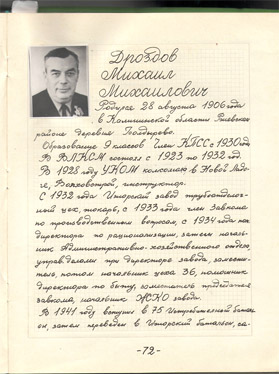 Дроздов
Михаил
Михаилович
Родился 28 августа 1906 года
в Калининской области Ржевском
районе деревне
Образование 9 классов Член КПСС с 1930 год
В ВЛКСМ состоял с 1923 по 1932 год.
В 1928 году УКОМ комсомола в Новой Ладо-
ге, Волховстрой, инструктор.
С 1932 года Ижорский завод трубопводоч-
ный цех, токарь, с 1933 года член завкома
по производственным вопросам, с 1934 года пом
директора по рационализации, затем началь-
ник Административно-хозяйственного отдела,
управделами при директоре завода, замести-
тель, потом начальник цеха 36, помощник
директора по быту, заместитель председателя
завкома, начальник ЖСКО завода.
В 1941 году вступил в 75 Истребительный баталь-
он, затем переведен в Ижорский батальон, са-
-72-